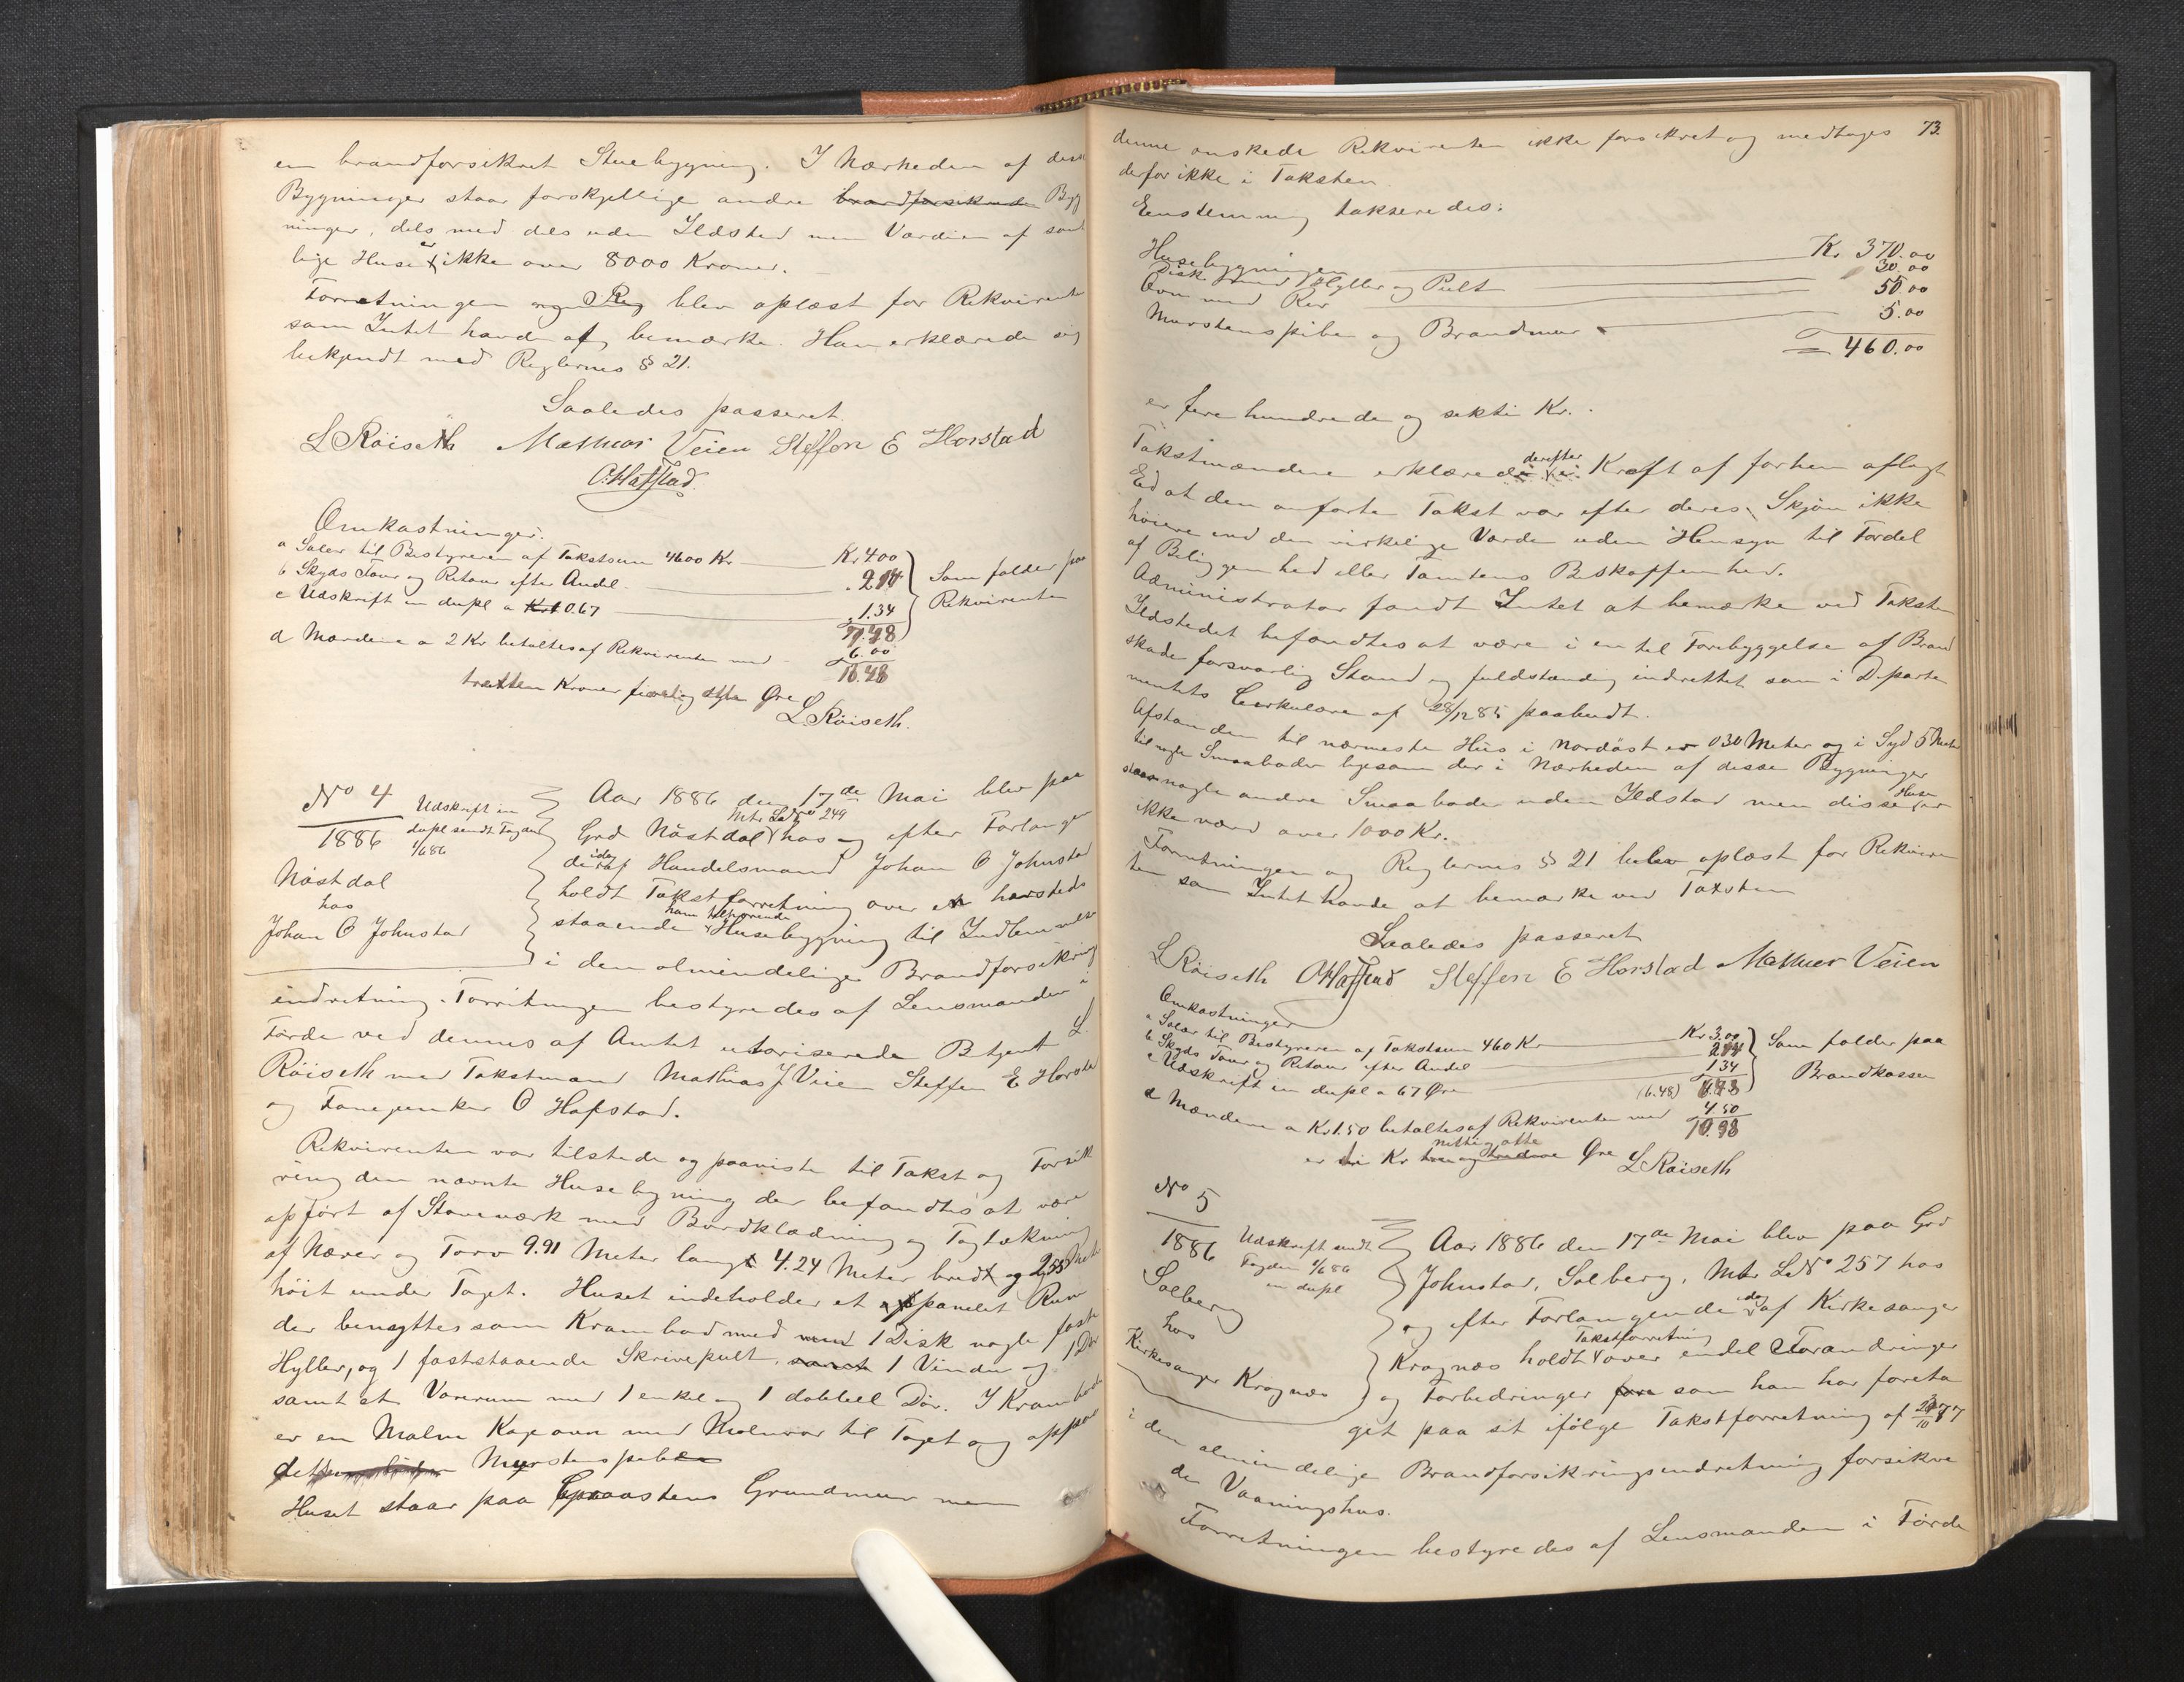 en brandforsikret Stuebygning. I Nærheden af disse
Bygninger staar forskjellige andre brandforsikrede Byg
ninger, dels med dels uden Ildsted men Værdien af saad
lige Huse er ikke over 8000 Kroner.
Forretningen og Reg blev oplæst for Rekvirenten
som Intet havde at bemærke. Han erklærede sig
bekjendt med Reglernes § 21.
Saaledes passeret
L Röiseth Mathias Veien Steffen E Horstad
O. Hafstad
Omkostninger.
a Salær til Bestyreren af Takstsum 4600 Kr Kr 4.00
b Skyds Tour og Retour efter Andel 2.14
c Udskrift in dupl a 0.67 1.34
Som falder paa
Rekvirenten
7.48
d Mændene a 2 Kr betaltes af Rekvirenten med 6.00
13.48
tretten Kroner firti og otte Øre
L. Röiseth.
No 4
1886
Udskrift in
dupl sendt Fogden
1/6 86
Nåstdal
hos
Johan O Johnstad
Aar 1886 den 17de Mai blev paa
Grd Nåstdal Mtr LNo 249 hos og efter Forlangen
de idag af Handelsmand Johan O Johnstad
holdt Takstforretning over en hersteds
staaende ham tilhørende Husebygning til Indlemmelse
i den almindelige Brandforsikrings
indretning. Forretningen bestyredes af Lensmanden i
Førde ved dennes af Amtet utoriserede Betjent L.
Röiseth med Takstmænd Mathias J Veien Steffen E Horstad
og Fanejunker O Hafstad.
Rekvirenten var tilstede og paaviste til Takst og Forsik
ring den nævnte Husebygning der befandtes at være
opført af Stavværk med Bordklædning og Tagtækning
af Næver og Torv 9.91 Meter langt 4.24 Meter bredt og 2.55 Meter
höit under Taget. Huset indeholder et panelet Rum
der benyttes som Krambod med 1 Disk nogle faste
Hyller, og 1 faststaaende Skrivepult, samt 1 Vindu og 1 Dør
samt et Varerum med 1 enkel og 1 dobbelt Dör. I Kramboden
er en Malm Kapovn med Malmrör til Taget og oppaa
dette Murstenspibe
Huset staar paa Graastens Grundmur men
73.
denne ønskede Rekvirenten ikke forsikret og medtages
derfor ikke i Taksten.
Eenstemmig takseredes:
Husebygningen Kr. 370.00
Disk med Hyller og Pult 30.00
Ovn med Rør 50.00
Murstenspibe og Brandmur 5.00
= 460.00
er fire hundrede og seksti Kr.
Takstmændene erklærede derefter i Kraft af forhen aflagt
Ed at den anførte Takst var efter deres Skjøn ikke
höiere end den virkelige Værdi uden Hensyn til Fordel
af Beliggenhed eller Tomtens Beskaffenhed.
Administrator fandt Intet at bemærke ved Taksten
Ildstedet befandtes at være i en til Forebyggelse af Brand
skade forsvarlig Stand og fuldstændig indrettet som i Departe
mentets Cirkulære af 28/12 85 paabudt.
Afstanden til nærmeste Hus i Nordöst er 030 Meter og i Syd 5 Meter
til nogle Smaaboder ligesom der i Nærheden af disse Bygninger
staar nogle andre Smaaboder uden Ildsted men disse Huse er
ikke værd over 1000 Kr.
Forretningen og Reglernes § 21 blev oplæst for Rekviren
ten som Intet havde at bemærke ved Taksten
Saaledes passeret
L Röiseth O Hafstad Steffen E Horstad Mathias Veien
Omkostninger
a Salær til Bestyreren af Takstsum 460 Kr Kr 3.00
b Skyds Tour og Retour efter Andel 2.14
c Udskrift in dupl a 67 Øre 1.34
Som falder paa
Brandkassen
(6.48)
d Mændene a Kr 1.50 betaltes af Rekvirenten med 4.50
10.98
er ti Kr nitti og otte Øre L Röiseth
No 5
1886
Udskrift sendt
Fogden 1/6 86
in dupl
Solberg
hos
Kirkesanger Kragnæs
Aar 1886 den 17de Mai blev paa Grd
Johnstad, Solberg, Mtr LNo 257 hos
og efter Forlangende idag af Kirkesanger
Kragnæs holdt Takstforretning over endel Forandringer
og Forbedringer som han har foreta
get paa sit ifölge Takstforretning af 29/10 77
i den almindelige Brandforsikringsindretning forsikre
de Vaaningshus.
Forretningen bestyredes af Lensmanden i Førde